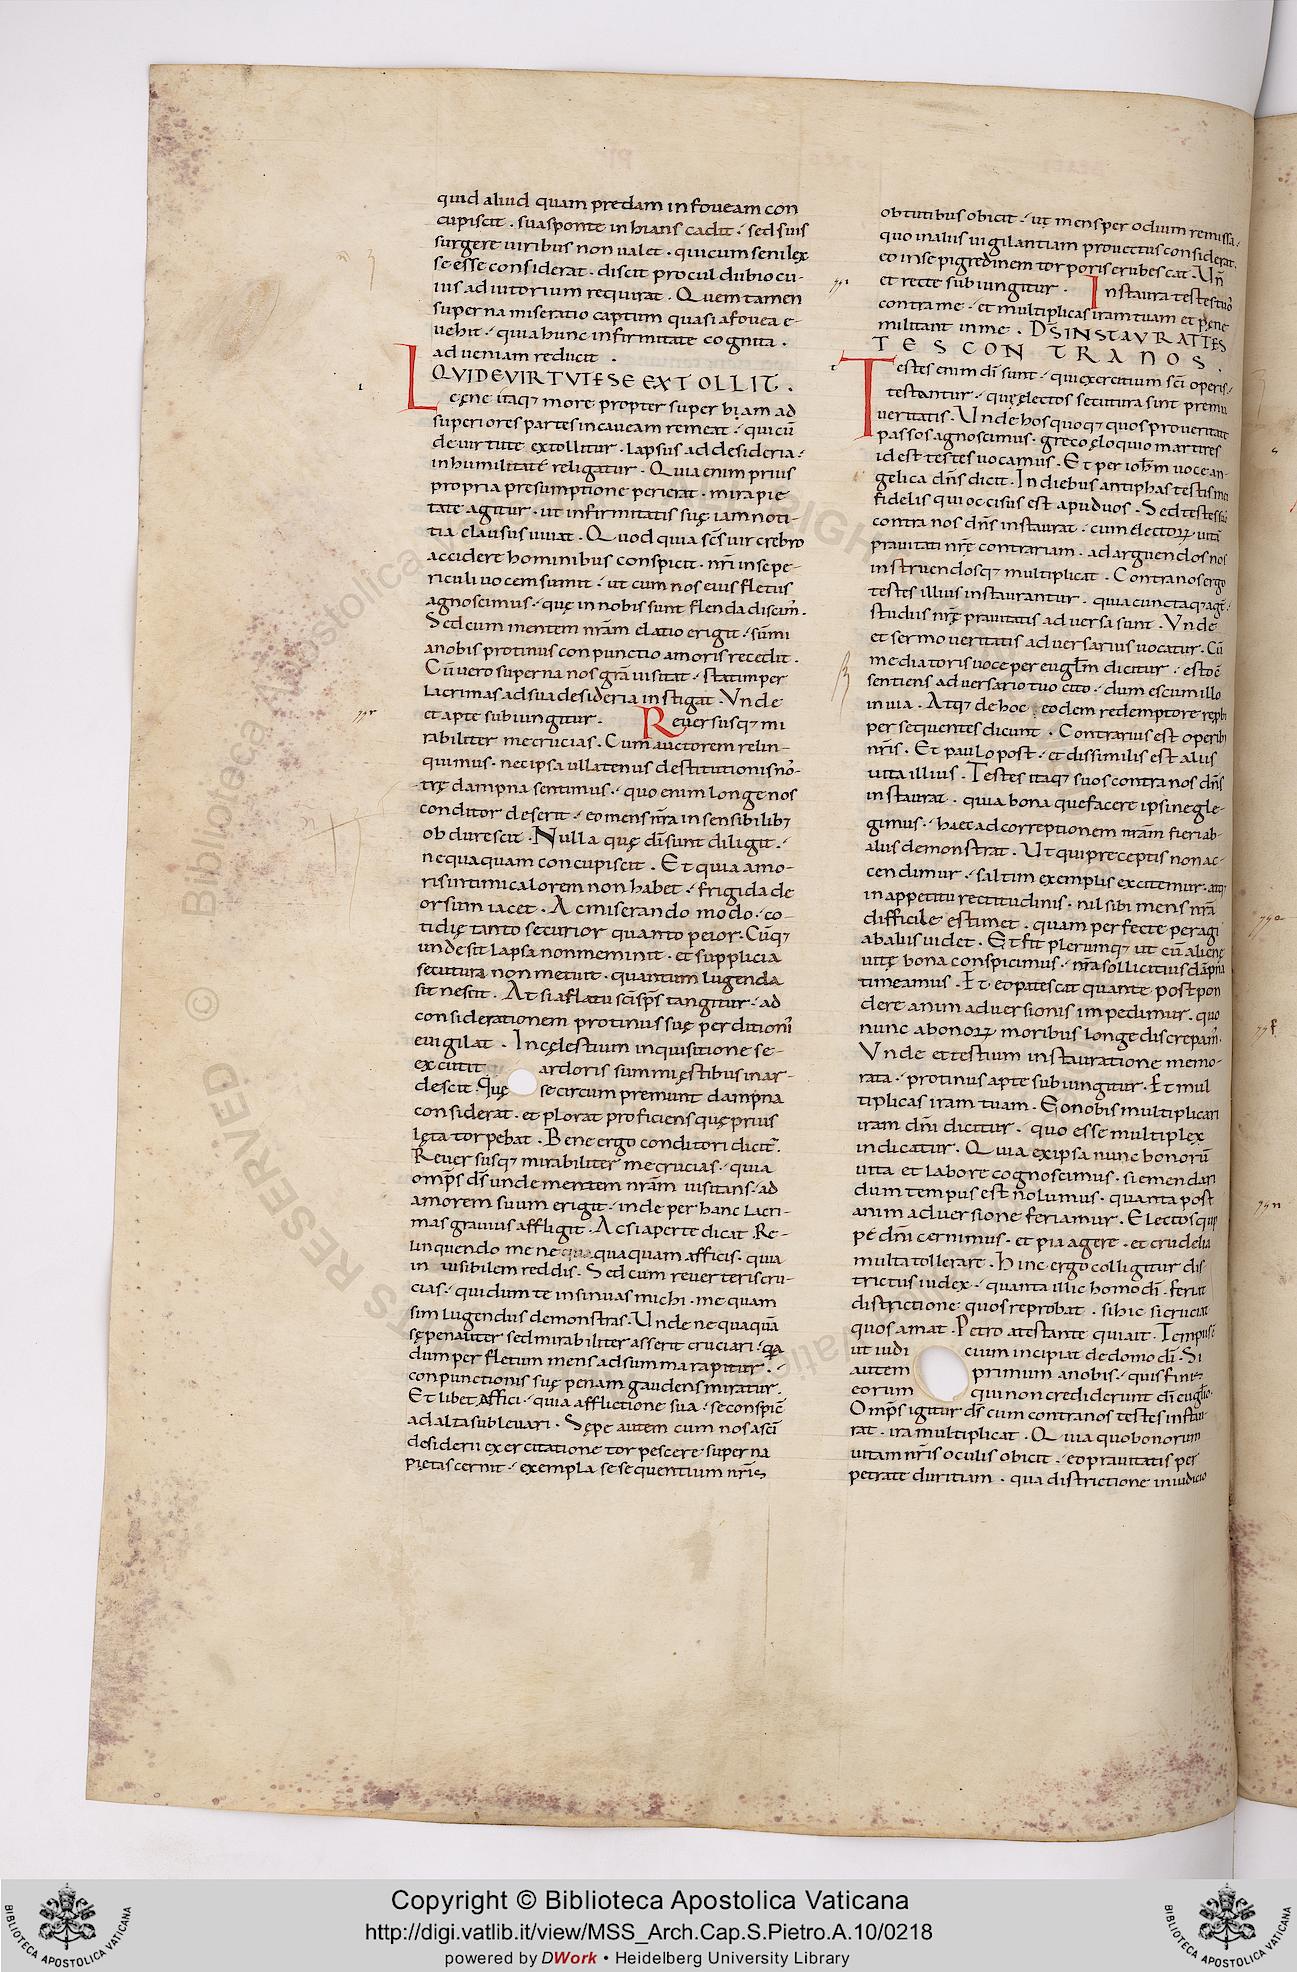 quid aliud quam predam in foveam con
cupiscit . sua sponte inhians cadit . sed suis
surgere viribus non valet . qui cum se ni lex
se esse considerat . discit procul dubio cu-
ius adiutorium requirat . Quem tamen
superna miseratio captum quasi a fovea e-
vehit . quia hunc infirmitate cognita .
ad veniam reducit .
QVI DE VIRTVTE SE EXTOLLIT .
Leęne itaq; more propter superbiam ad
superiores partes in caveam remeat . qui cū
de virtute extollitur . lapsus ad desideria .
in humilitate religatur . Quia enim prius
propria presumptione perierat . mira pie
tate agitur . ut infirmitatis suę iam noti-
tia clausus vivat . Quod quia scs vir crebro
accidere hominibus conspicit . nri in se pe-
riculi vocem sumit . ut cum nos eius fletus
agnoscimus . quę in nobis sunt flenda discam .
Sed cum mentem nram elatio erigit . sūmi
a nobis protinus conpunctio amoris recedit .
Cū vero superna nos gra visitat . statim per
lacrimas ad sua desideria instigat . Vnde
et apte subiungitur . Reversusq; mi
rabiliter me crucias . Cum auctorem relin-
quimus . nec ipsa ullatenus destitutionis no-
trę dampna sentimus . quo enim longe nos
conditor deserit . eo mens nra insensibilib;
obdurescit . Nulla quę di sunt diligit .
nequaquam concupiscit . Et quia amo-
ris intimi calorem non habet . frigida de
orsum iacet . Ac miserando modo . co-
tidię tanto securior quanto peior . Cūq;
unde sit lapsa non meminit . et supplicia
secutura non metuit . quantum lugenda
sit nescit . At si aflatu sci sps tangitur . ad
considerationem protinus suę perditioni
evigilat . In cęlestium inquisitione se-
excutit ardoris summi ęstibus inar-
descit . Quę se circum premunt dampna
considerat . et plorat proficiens quę prius
lęta torpebat . Bene ergo conditori dicit .
Reversusq; mirabiliter me crucias . quia
omps ds unde mentem nram visitans . ad
amorem suum erigit . inde per hanc lacri-
mas gravius affligit . Ac si aperte dicat . Re-
linquendo me nequaquam afficis . quia
in visibilem reddis . Sed cum reverteris cru-
cias . qui dum te insinuas michi . me quam
sim lugendus demonstras . Unde nequaquā
sępenaliter sed mirabiliter asserit cruciari . qa
dum per fletum mens ad summa rapitur .
conpunctionis suę penam gaudens miratur .
Et libet affici . quia afflictione sua . se conspic
ad alta sublevari . Sępe autem cum nos asci
desiderii exercitatione torpescere superna
pietas cernit . exempla se sequentium nris
obtutibus obicit . ut mens per odium remissa .
quo in aliis vigilantiam provectus considerat .
eo in se pigredinem torporis erubescat . Un̄
et recte subiungitur . Instaura testes tuos
contra me . et multiplicas iram tuam et pęne
militant in me . DS INSTAVRAT TES
TES CONTRA NOS .
Testes enim di sunt . qui exercitium sci operis
testantur . quę electos secutura sint premia
veritatis . Unde hos quoq; quos pro veritate
passos agnoscimus . greco eloquio martires
id est testes vocamus . Et per iohm voce an-
gelica dns dicit . In diebus antiphas testis ms
fidelis qui occisus est apud vos . Sed testes suos
contra nos dns instaurat . cum electorꝝ vitā
pravitati nrę contrariam . ad arguendos nos
instruendosq; multiplicat . Contra nos ergo
testes illius instaurantur . quia cuncta q; agt .
studiis nrę pravitatis adversa sunt . Vnde
et sermo veritatis adversarius vocatur . Cū
mediatoris voce per euglm dicitur . esto c̄
sentiens adversario tuo cito . dum es cum illo
in via . Atq; de hoc eodem redemptore repbi
persequentes dicunt . Contrarius est operibus
nris . Et paulo post . et dissimilis est aliis
vita illius . Testes itaq; suos contra nos dns
instaurat . quia bona que facere ipsi negle-
gimus . haec ad correptionem nram fieri ab
aliis demonstrat . Ut qui preceptis non ac-
cendimur . saltim exemplis excitemur . atq;
in appetitu rectitudinis . nil sibi mens nra
difficile estimet . quam perfecte peragi
ab aliis videt . Et fit plerumq; ut cū alienę
vitę bona conspicimus . nra sollicitius dāpna
timeamus . Et eo patescat quante post pon
dere animadversionis impedimur . quo
nunc a bonorꝝ moribus longe discrepam .
Vnde et testium instauratione memo-
rata . protinus apte subiungitur . Et mul
tiplicas iram tuam . Eo nobis multiplicari
iram dni dicitur . quo esse multiplex
indicatur . Quia ex ipsa nunc bonorū
vita et labore cognoscimus . si emendari
dum tempus est nolumus . quanta post
animadversione feriamur . Electos quip
pe dni cernimus . et pia agere . et crudelia
multa tollerare . Hinc ergo colligitur dis
trictus iudex . quanta illic homo di . feriat
districtione quos reprobat . si hic si cruciat
quos amat . Petro atestante qui ait . Tempus ē
ut iudi cium incipiat de domo di . Si
autem primum a nobis . quis finis
eorum qui non crediderunt di euglio .
Omps igitur ds cum contra nos testes instau
rat . ira multiplicat . Quia quo bonorum
vitam nris oculis obicit . eo pravitatis per
petrate duritiam . qua districtione in iudicio
© Biblioteca Apostolica Vaticana
ALL RIGHTS RESERVED
BIBLIOTECA APOSTOLICA VATICANA
Copyright © Biblioteca Apostolica Vaticana
http://digi.vatlib.it/view/MSS_Arch.Cap.S.Pietro.A.10/0218
powered by DWork • Heidelberg University Library
BIBLIOTECA APOSTOLICA VATICANA